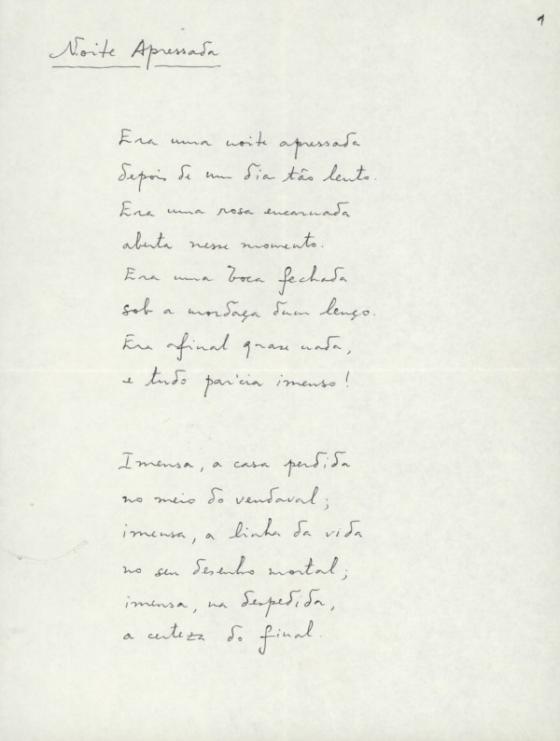 1
Noite Apressada
Era uma noite apressada
depois de um dia tão lento.
Era uma rosa encarnada
aberta nesse momento.
Era uma boca fechada
sob a mordaça dum lenço.
Era afinal quase nada,
e tudo par'cia imenso!
Imensa, a casa perdida
no meio do vendaval;
imensa, a linha da vida
no seu desenho mortal;
imensa, na despedida,
a certeza do final.